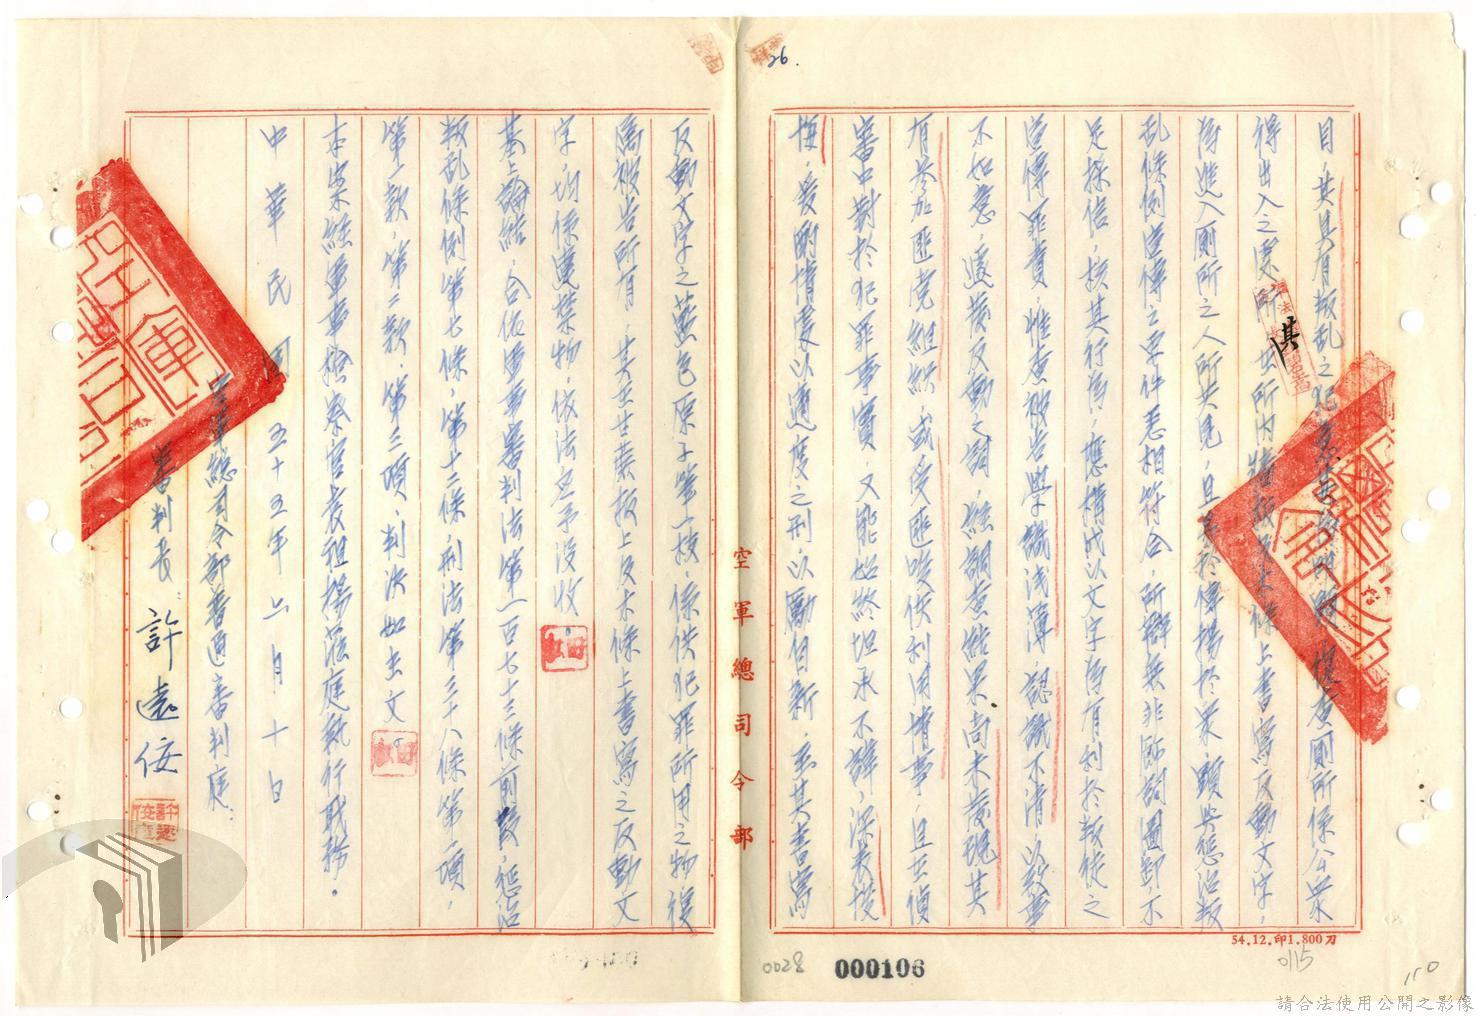 目，其具有叛乱之犯意甚為明顯，復查厠所係公眾
得出入之處所，其在所内牆板及木條上書寫反動文字，
為進入厠所之人所共見，且至於傳揚於眾，顯與懲治叛
乱條例宣傳之要件悉相符合，所辯無非飾詞圖卸，不
足採信，核其行為，應構成以文字為有利於叛徒之
宣傳罪責，惟查被告學識浅薄，認識不清，以致事
不如意，遂萌反動之詞，經調查結果尚未發現其
有參加匪党組織，或受匪唆使利用情事，且在偵
審中對於犯罪事實，又能始終坦承不諱，深表悛
悔，爰酌情處以適度之刑，以勵自新，至其書寫
反動文字之藍色原子筆一枝，係供犯罪所用之物復
為被告所有，其在甘蔗板上及木條上書寫之反動文
字，均係違禁物，依法宣予没收。
基上論結，合依軍事審判法第一百七十三條前段，懲治
叛乱條例第七條，第十二條，刑法第三十八條第一項，
第一款，第二款，第三項，判决如主文。
本案經軍事檢察官袁祖揚蒞庭執行職務。
中華民國五十五年六月十日
空軍總司令部普通審判庭：
審判長：許遠佞
空軍總司令部
26.
54.12.印1.800刀
0028
000106
0115
110
請合法使用公開之影像